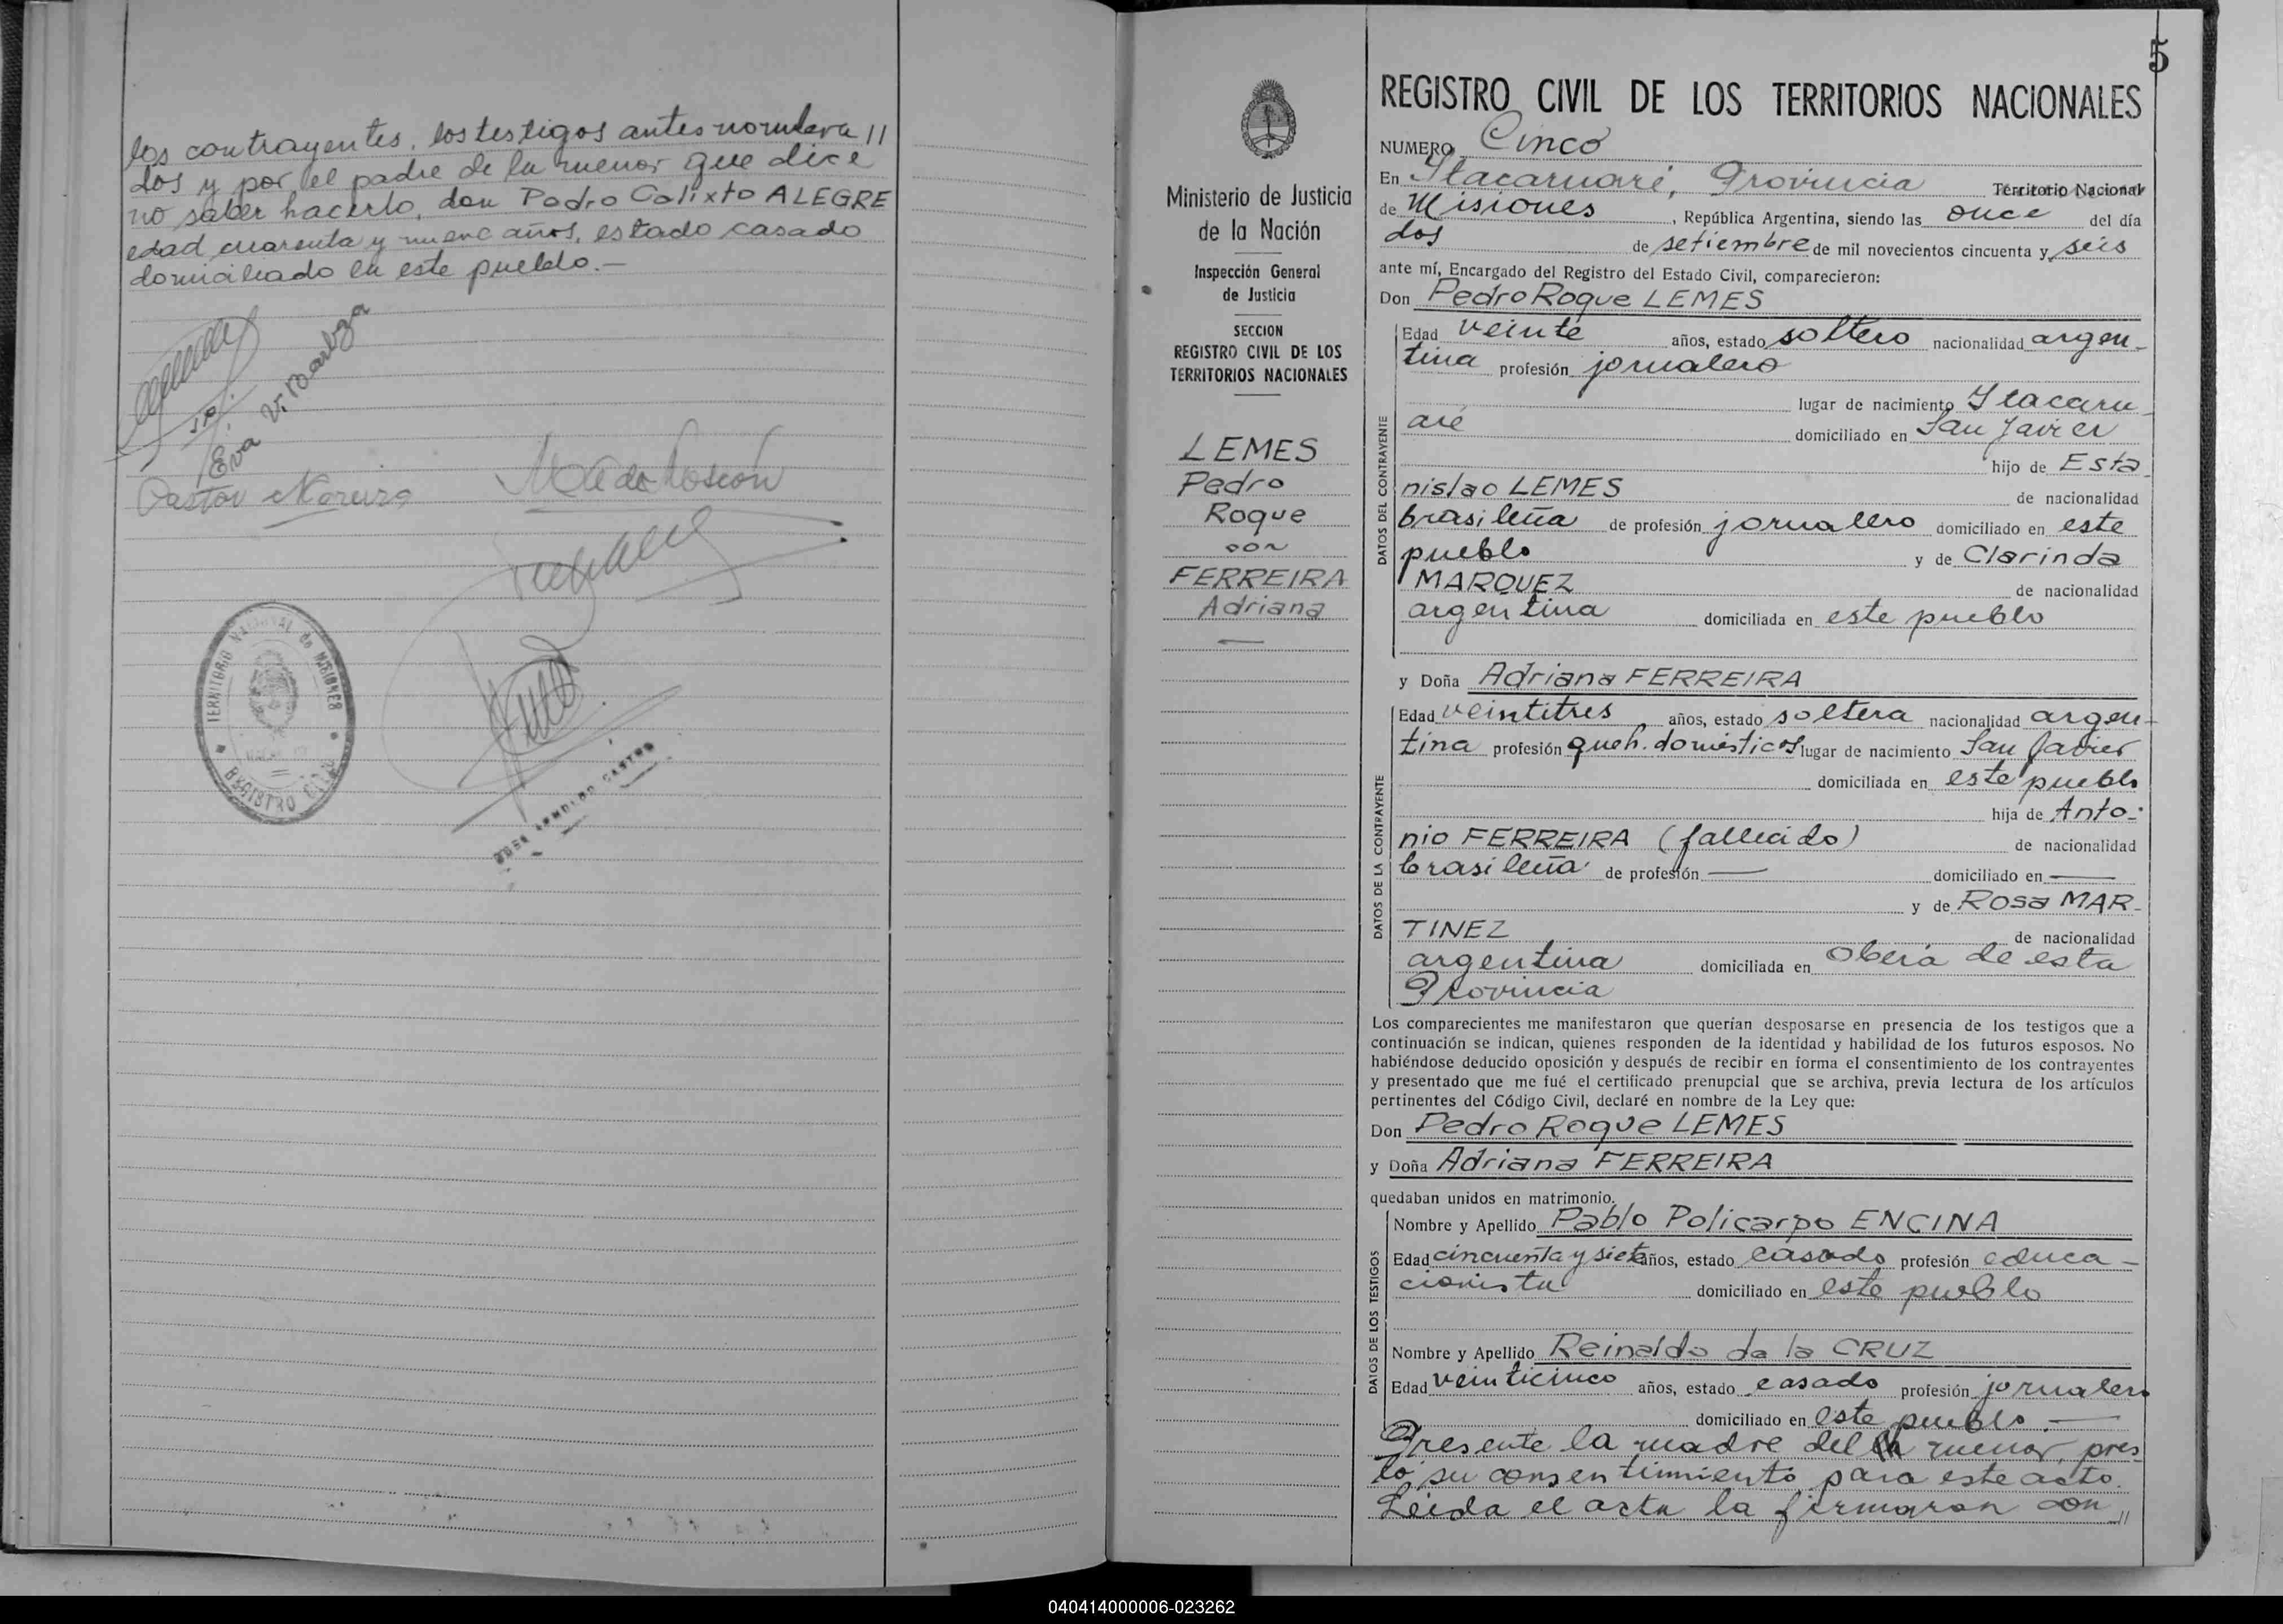 los contrayentes, los testigos antes nombra //
dos y por el padre de la menor que dice
no saber hacerlo, don Pedro Calixto ALEGRE
edad cuarenta y nueve años, estado casado
domiciliado en este pueblo.—
Eva V.
Pastor
TERRITORIO NACIONAL de MISIONES
REGISTRO CIVIL
5
Ministerio de Justicia
de la Nación
Inspección General
de Justicia
SECCION
REGISTRO CIVIL DE LOS
TERRITORIOS NACIONALES
LEMES
Pedro
Roque
con
FERREIRA
Adriana
REGISTRO CIVIL DE LOS TERRITORIOS NACIONALES
NUMERO Cinco
En Itacaruaré, Provincia Territorio Nacional
de Misiones, República Argentina, siendo las once del día
dos de setiembre de mil novecientos cincuenta y seis
ante mí, Encargado del Registro del Estado Civil, comparecieron:
Don Pedro Roque LEMES
DATOS DEL CONTRAYENTE
Edad veinte años, estado soltero nacionalidad argen-
tina profesión jornalero
lugar de nacimiento Itacaru-
aré domiciliado en San Javier
hijo de Esta-
nislao LEMES de nacionalidad
brasileña de profesión jornalero domiciliado en este
pueblo y de Clarinda
MARQUEZ de nacionalidad
argentina domiciliada en este pueblo
y Doña Adriana FERREIRA
DATOS DE LA CONTRAYENTE
Edad veintitres años, estado soltera nacionalidad argen-
tina profesión queh. domésticos lugar de nacimiento San Javier
domiciliada en este pueblo
hija de Anto-
nio FERREIRA (fallecido) de nacionalidad
brasileña de profesión — domiciliado en —
y de Rosa MAR-
TINEZ de nacionalidad
argentina domiciliada en Oberá de esta
Provincia
Los comparecientes me manifestaron que querían desposarse en presencia de los testigos que a
continuación se indican, quienes responden de la identidad y habilidad de los futuros esposos. No
habiéndose deducido oposición y después de recibir en forma el consentimiento de los contrayentes
y presentado que me fué el certificado prenupcial que se archiva, previa lectura de los artículos
pertinentes del Código Civil, declaré en nombre de la Ley que:
Don Pedro Roque LEMES
y Doña Adriana FERREIRA
quedaban unidos en matrimonio.
DATOS DE LOS TESTIGOS
Nombre y Apellido Pablo Policarpo ENCINA
Edad cincuenta y siete años, estado casado profesión educa-
cionista domiciliado en este pueblo
Nombre y Apellido Reinaldo de la CRUZ
Edad veinticinco años, estado casado profesión jornalero
domiciliado en este pueblo.—
Presente la madre del menor, pres
tó su consentimiento para este acto.
Leida el acta la firmaron con //
040414000006-023262